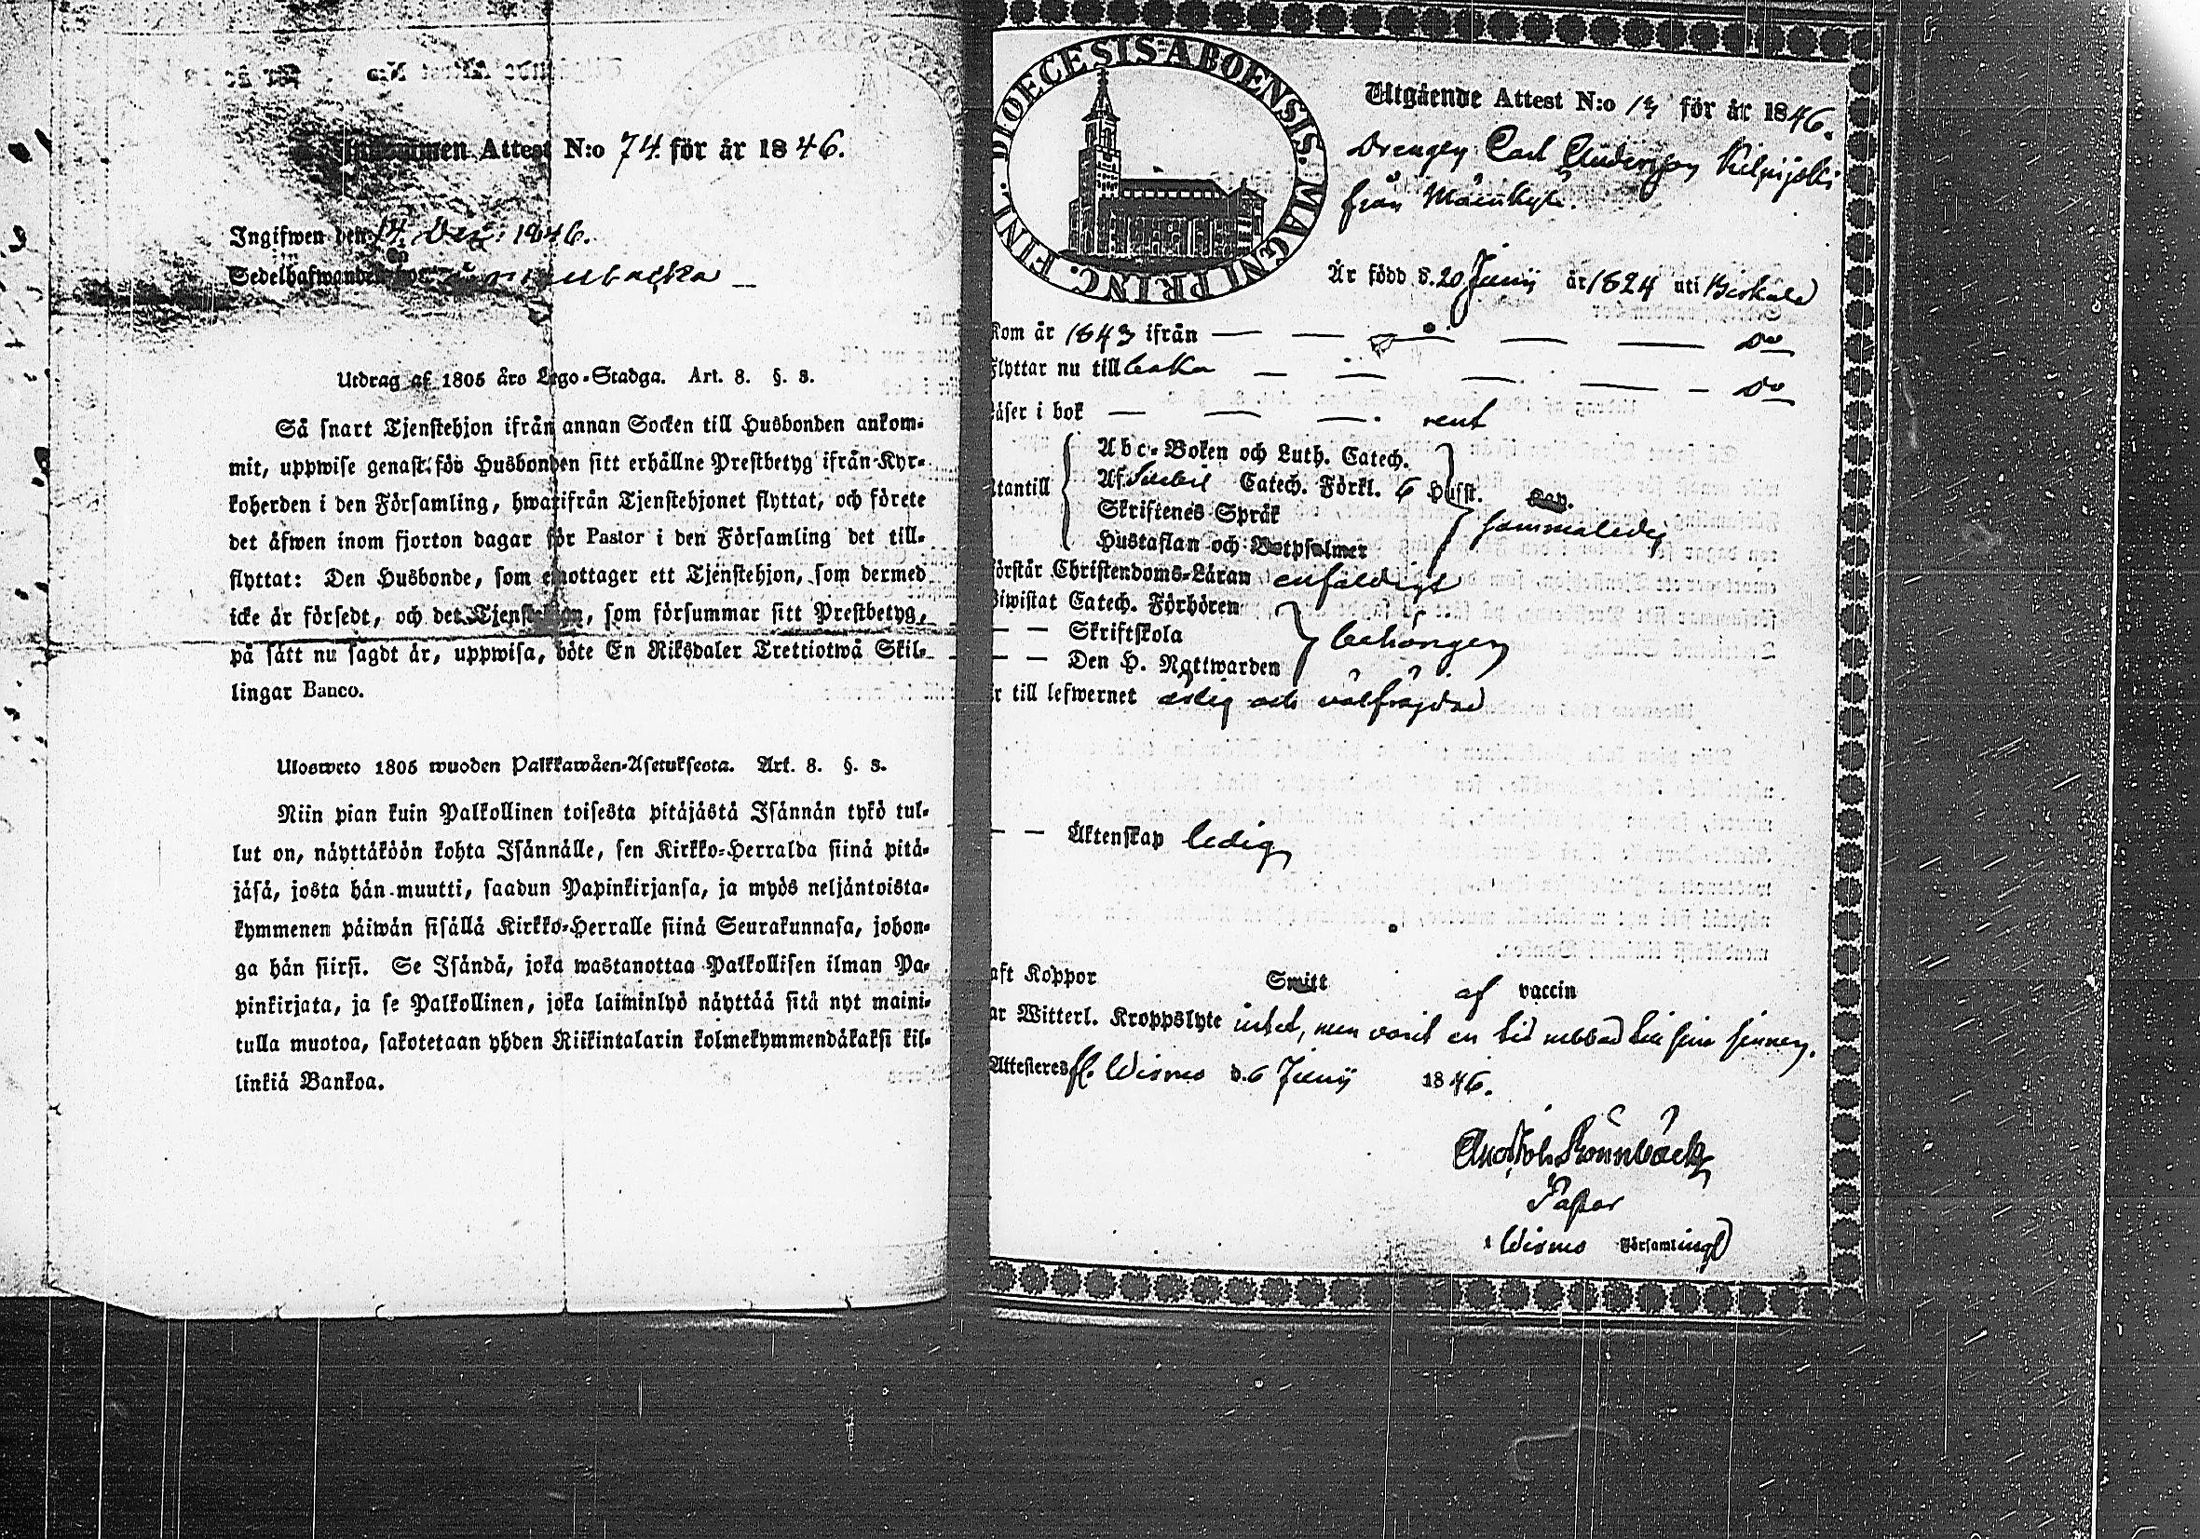 Inkommen Attest N:o 74. för år 1846.
Ingifwen den 14. Dec: 1846.
Sedelhafwanden
Utdrag af 1805 års Lego-Stadga. Art. 8. §. 3.
Så snart Tjenstehjon ifrån annan Socken till Husbonden ankom-
mit, uppwise genast för Husbonden sitt erhållne Prestbetyg ifrån Kyr-
koherden i den Församling, hwarifrån Tjenstehjonet flyttat, och förete
det åfwen inom fjorton dagar för Pastor i den Församling det till-
flyttat: Den Husbonde, som emottager ett Tjenstehjon, som dermed
icke år försedt, och det Tjenstehjon, som försummar sitt Prestbetyg,
på sått nu sagdt år, uppwisa, böte En Riksdaler Trettiotwå Skil-
lingar Banco.
Ulosweto 1805 wuoden Palkkawåen-Asetuksesta. Art. 8. §. 3.
Niin pian kuin Palkollinen toisesta pitåjåstå Isånnån tykö tul-
lut on, nåyttåköön kohta Isånnålle, sen Kirkko-Herralda siinå pitå-
jåså, josta hån muutti, saadun Papinkirjansa, ja myös neljåntoista-
kymmenen påiwån sisållå Kirkko-Herralle siinå Seurakunnasa, johon-
ga hån siirsi. Se Isåndå, joka wastanottaa Palkollisen ilman Pa-
pinkirjata, ja se Palkollinen, joka laiminlyö nåyttåå sitå nyt maini-
tulla muotoa, sakotetaan yhden Riikintalarin kolmekymmendåkaksi kil-
linkiå Bankoa.
DIOECESIS ABOENSIS. MAGNI PRINC. FINL.
Utgående Attest N:o 13 för år 1846.
Drengen Carl Andersson Kilpijoki
från
År född d. 20 Junij år 1824 uti Birkala
Kom år 1843 ifrån — — — — — Do
Flyttar nu till baka — — — — — Do
Låser i bok — — — rent
Utantill
Abc-Boken och Luth. Catech.
Af Svebil Catech. Förkl. 6 Husst.
Skriftenes Språk
Hustaflan och Botpsalmer
sammaledes
Förstår Christendoms-Låran enfaldigt
Biwistat Catech. Förhören
— — Skriftskola
— — Den H. Nattwarden
behörigen
Är till lefwernet ärlig och välfrägdad
— — Äktenskap ledig
Haft Koppor Smitt af vaccin
Har Witterl. Kroppslyte intet, men varit en tid rubbad till sina sinnen.
Attesteres fr. Wismo d. 6 Junij 1846.
And. Joh. Rönnbäck
Pastor
i Wismo Församling